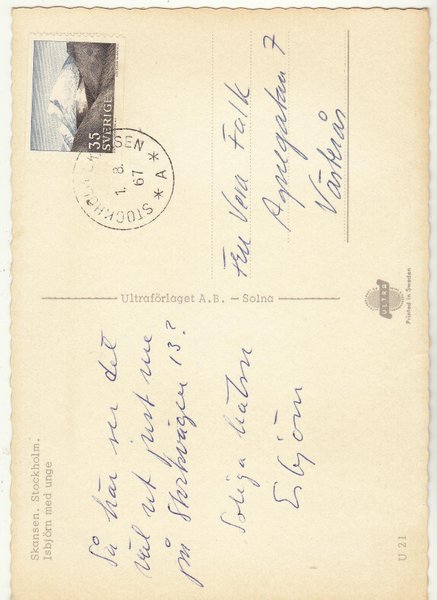 Skansen. Stockholm.
Isbjörn med unge
Så här ser det
väl ut just nu
på Storkvägen 13?
Soliga hälsn
Esbjörn
U 21
Ultraförlaget A.B. — Solna
35
SVERIGE
STOCKHOLM SKANSEN
1. 8. 67
* A *
Fru Vera Falk
7
Västerås
ULTRA
Printed in Sweden